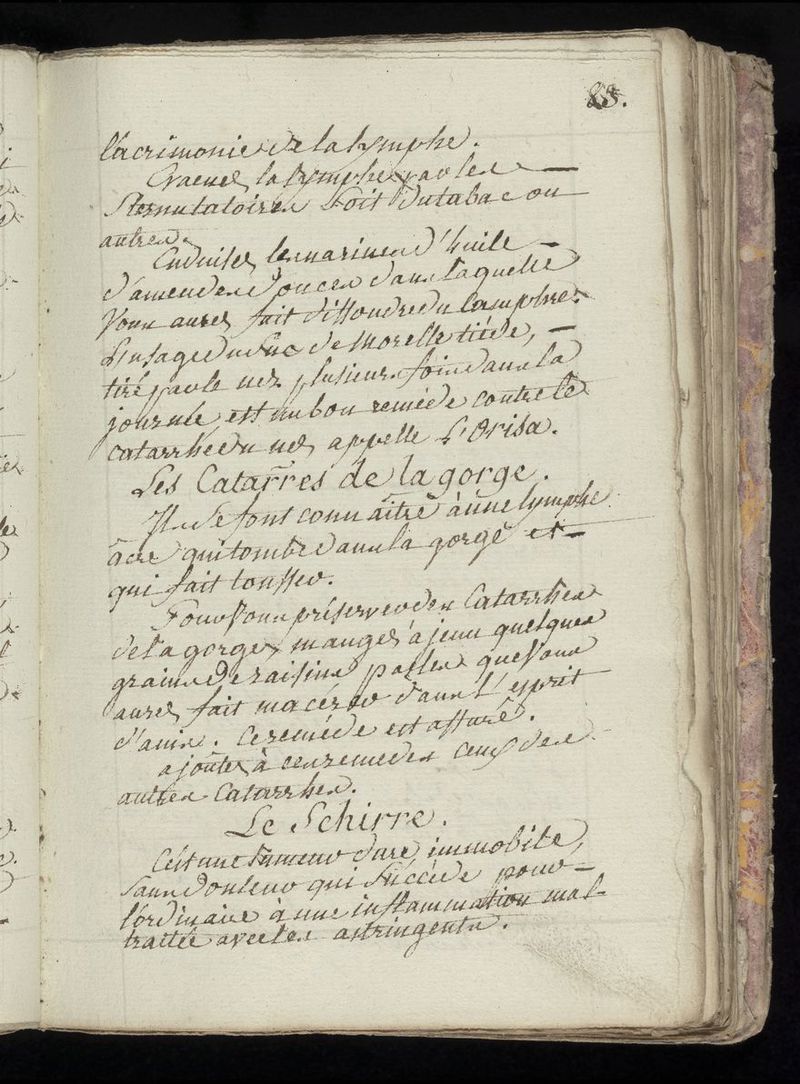 85.
l'acrimonie de la lymphe.
Evacuez la lymphe par les —
Sternutatoires soit du tabac ou
autres.
Enduisez les narines d'huile —
d'amendes douces dans laquelle
vous aurez fait dissoudre du camphre.
L'usage du suc de Morelle tiéde, —
tiré par le nez plusieurs fois dans la
journée est un bon reméde contre le
catarrhe du nez appellé L'Orisa.
Les Catarres de la gorge.
Ils se font connaitre à une lymphe
âcre qui tombe dans la gorge et —
qui fait tousser.
Pour vous préserver des Catarrhes
de la gorge, mangez à jeun quelques
grains de raisins passes que vous
aurez fait macérer dans l'esprit
d'anis. Ce reméde est assuré.
ajoutez à ces remedes ceux des
autres Catarrhes.
Le Schirre.
C'est une tumeur dure immobile,
sans douleur qui succède pour —
l'ordinaire à une inflammation mal-
traitée avec les astringents.